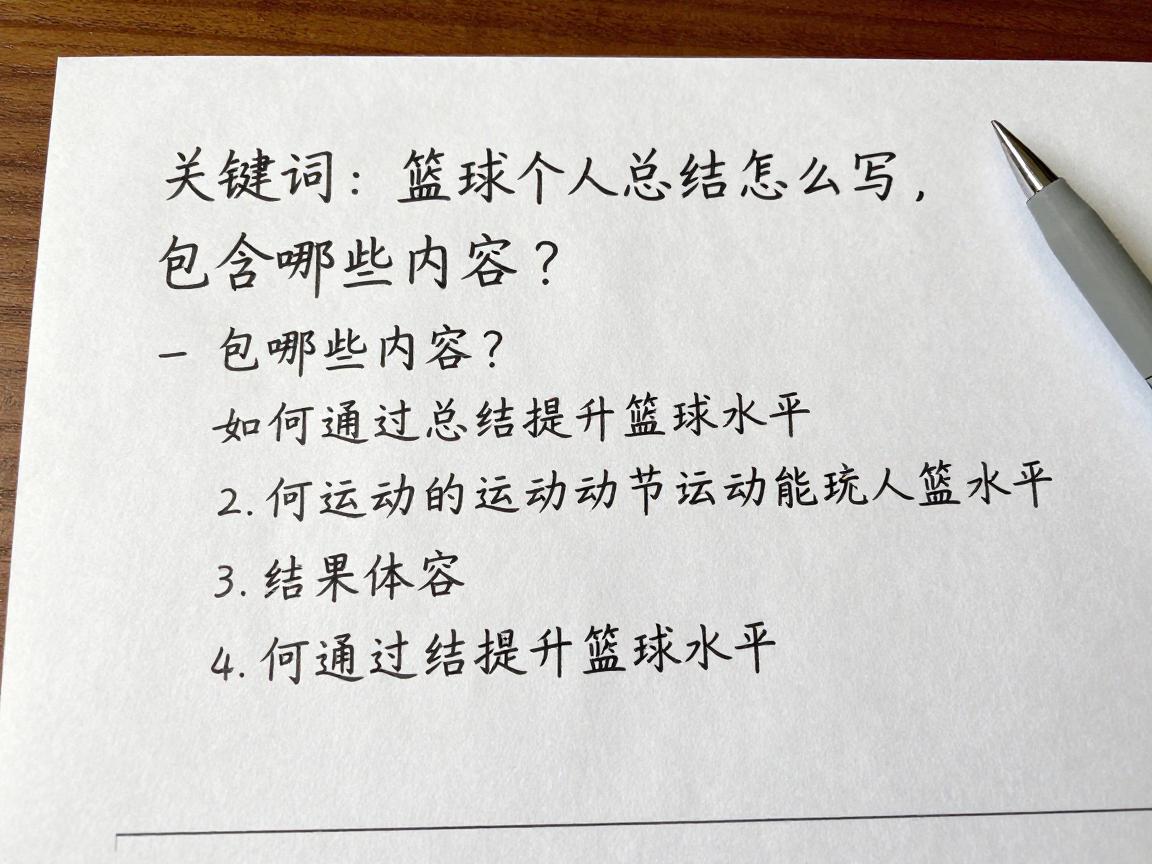 关键词：篮球个人总结怎么写，
包含哪些内容？
– 包哪些内容？
如何通过总结提升篮球水平
2. 何运动的运动动节运动能玩人篮水平
3. 结果体容
4. 何通过结提升篮球水平